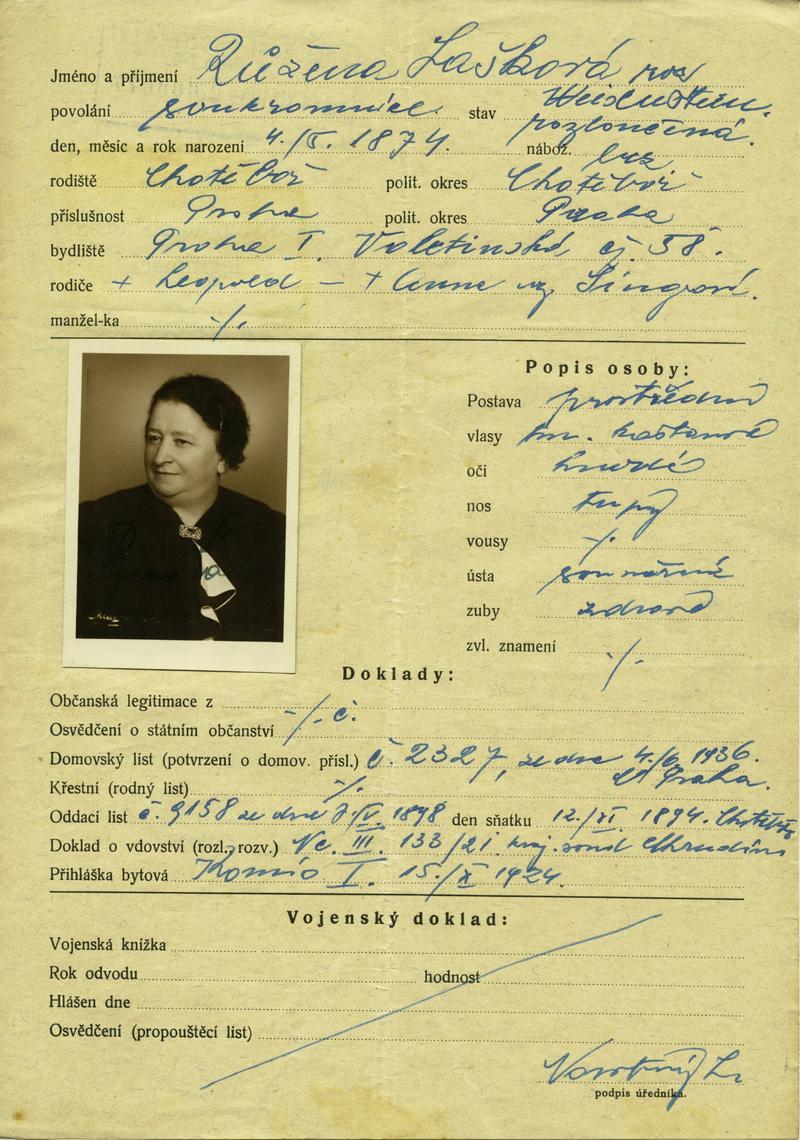 Jméno a příjmení Růžena Lašková roz
povolání soukromnice stav Weidnstein
rozloučená
den, měsíc a rok narození 4./V. 1874. nábož. brz
rodiště Chotěboř polit. okres Chotěboř
příslušnost Praha polit. okres Praha
bydliště Praha I. Valetinská čj. 58.
rodiče + Leopold – + Anna roz.
manžel-ka -/.
Popis osoby:
Postava prostřední
vlasy tm. kaštanové
oči hnědé
nos tupý
vousy -/.
ústa souměrná
zuby zdravé
zvl. znamení -/.
Doklady:
Občanská legitimace z
Osvědčení o státním občanství -/. č.
Domovský list (potvrzení o domov. přísl.) č. 2327, ze dne 4./6. 1936.
Praha.
Křestní (rodný list) -/.
Oddací list č. 9158 ze dne 1898 den sňatku 12./XI. 1894. Chotěboř
Doklad o vdovství (rozl., rozv.) Nc. III. 133/21 kraj. soud Chrudim
Přihláška bytová I. 15./X 1924.
Vojenský doklad:
Vojenská knížka
Rok odvodu hodnost
Hlášen dne
Osvědčení (propouštěcí list)
Novotný
podpis úředníka.